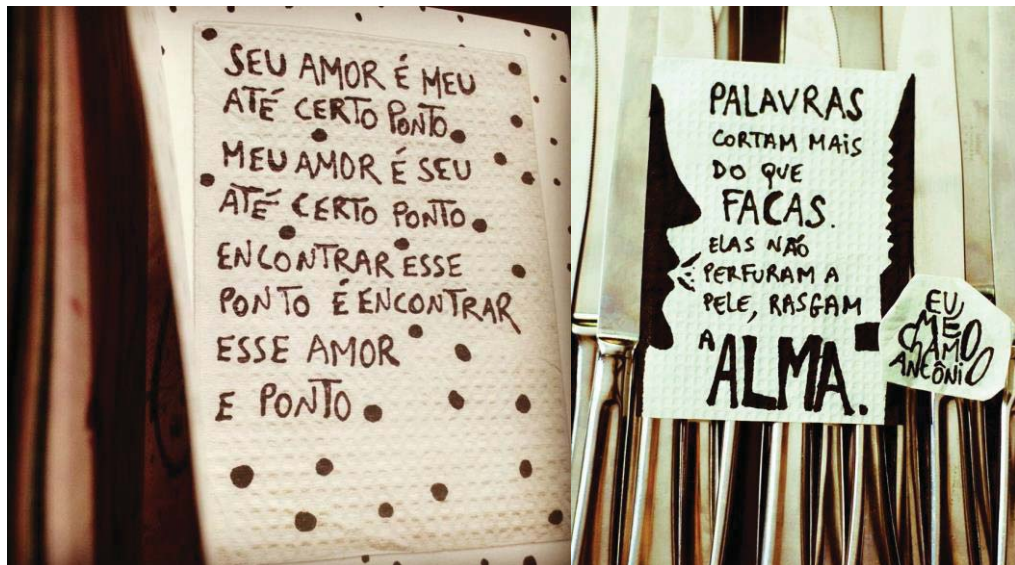 SEU AMOR É MEU
ATÉ CERTO PONTO.
MEU AMOR É SEU
ATÉ CERTO PONTO.
ENCONTRAR ESSE
PONTO É ENCONTRAR
ESSE AMOR
E PONTO.
PALAVRAS
CORTAM MAIS
DO QUE
FACAS.
ELAS NÃO
PERFURAM A
PELE, RASGAM
A ALMA.
EU
ME
CHAMO
ANTÔNIO